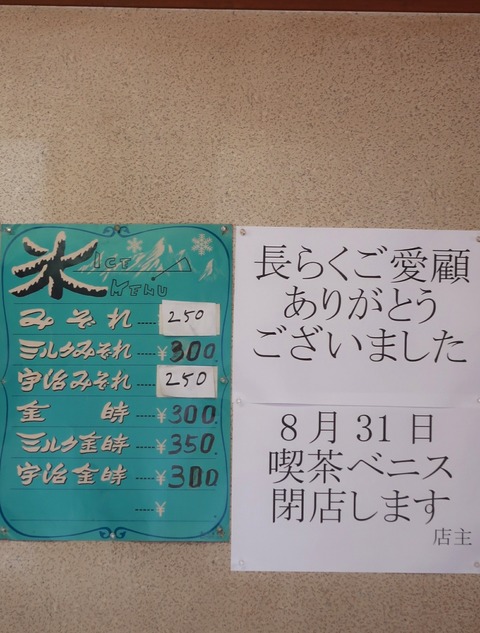 氷 ICE
MENU
みぞれ ----- 250
ミルクみぞれ ---- ¥300
宇治みぞれ ---- 250
金時 ---- ¥300
ミルク金時 ---- ¥350
宇治金時 ---- ¥300
---- ¥
長らくご愛顧
ありがとう
ございました
8月31日
喫茶ベニス
閉店します
店主